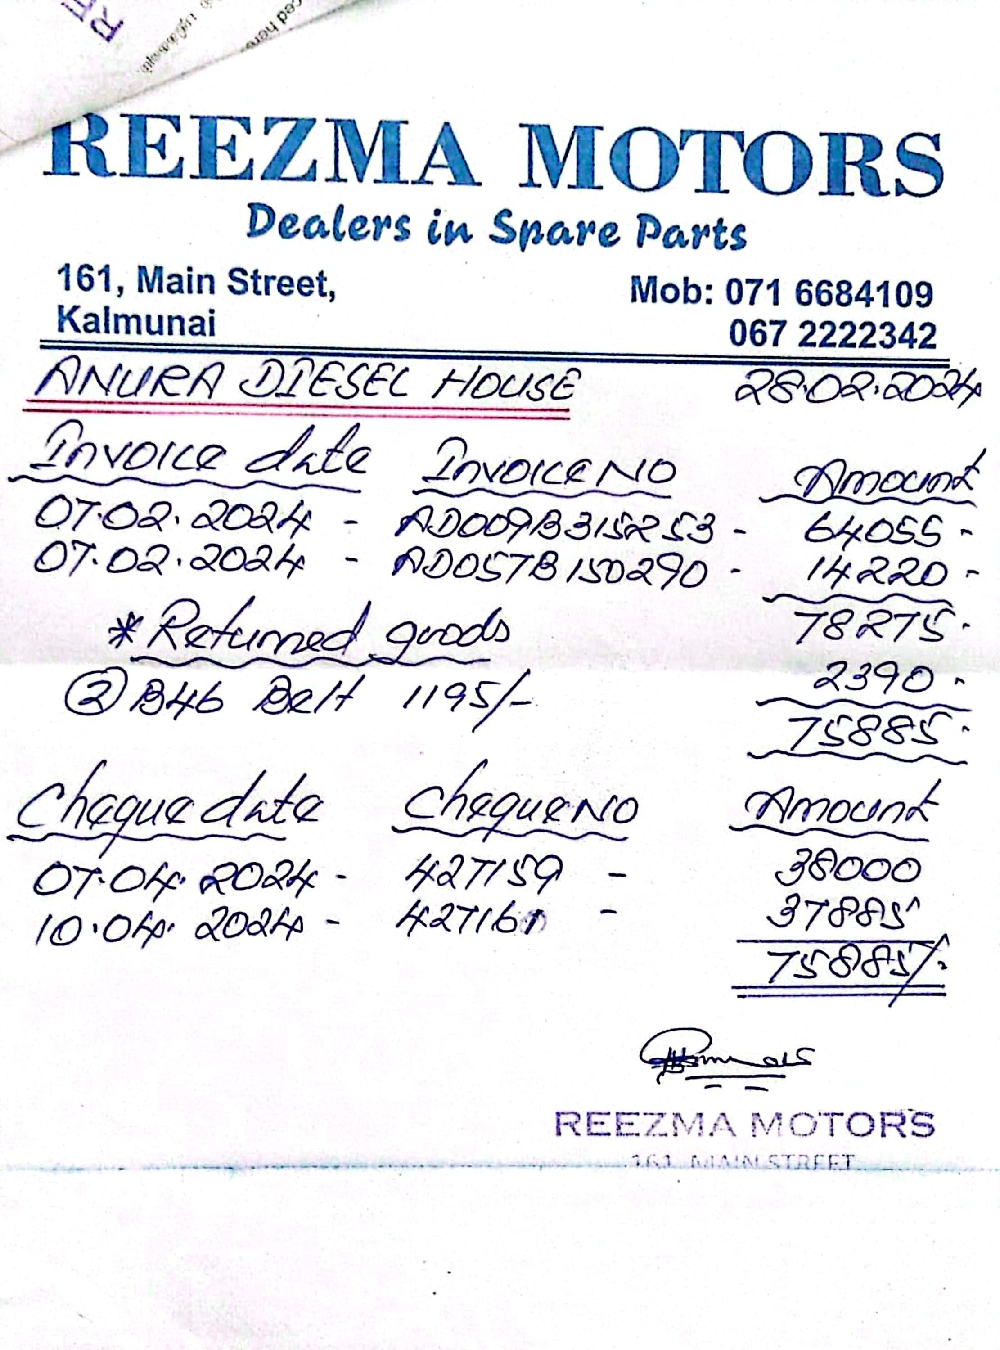 REEZMA MOTORS
Dealers in Spare Parts
161, Main Street, Mob: 071 6684109
Kalmunai 067 2222342
ANURA DIESEL HOUSE 28.02.2024
Invoice date Invoice NO Amount
07.02.2024 - AD009B315253 - 64055-
07.02.2024 - AD057B150290 - 14220-
* Returned goods 78275.
2390.
② B46 Belt 1195/-
75885.
Cheque date Cheque NO Amount
07.04.2024 - 427159 - 38000
10.04.2024 - 427161 - 37885
75885/-
REEZMA MOTORS
161, MAIN STREET